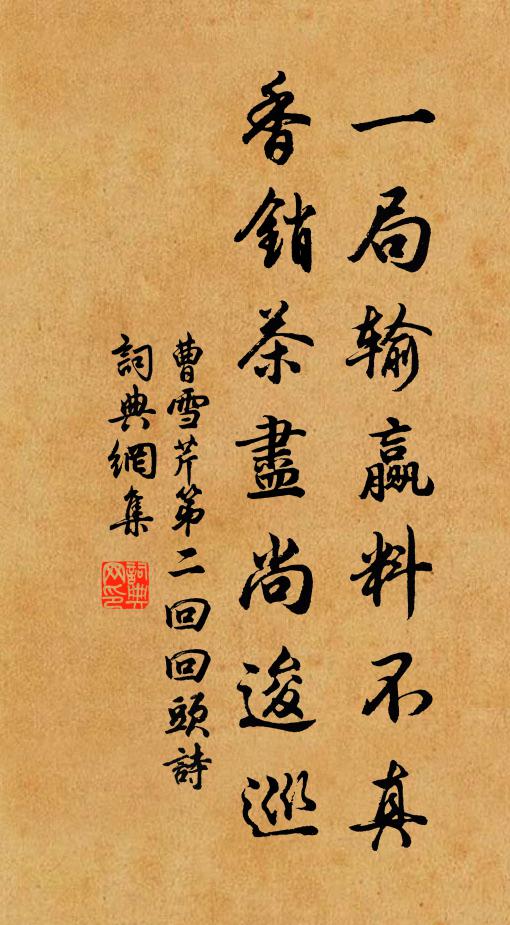 一局输赢料不真
香銷茶盡尚逡巡
曹雪芹第二回回頭詩
詞典網集
詞典网印